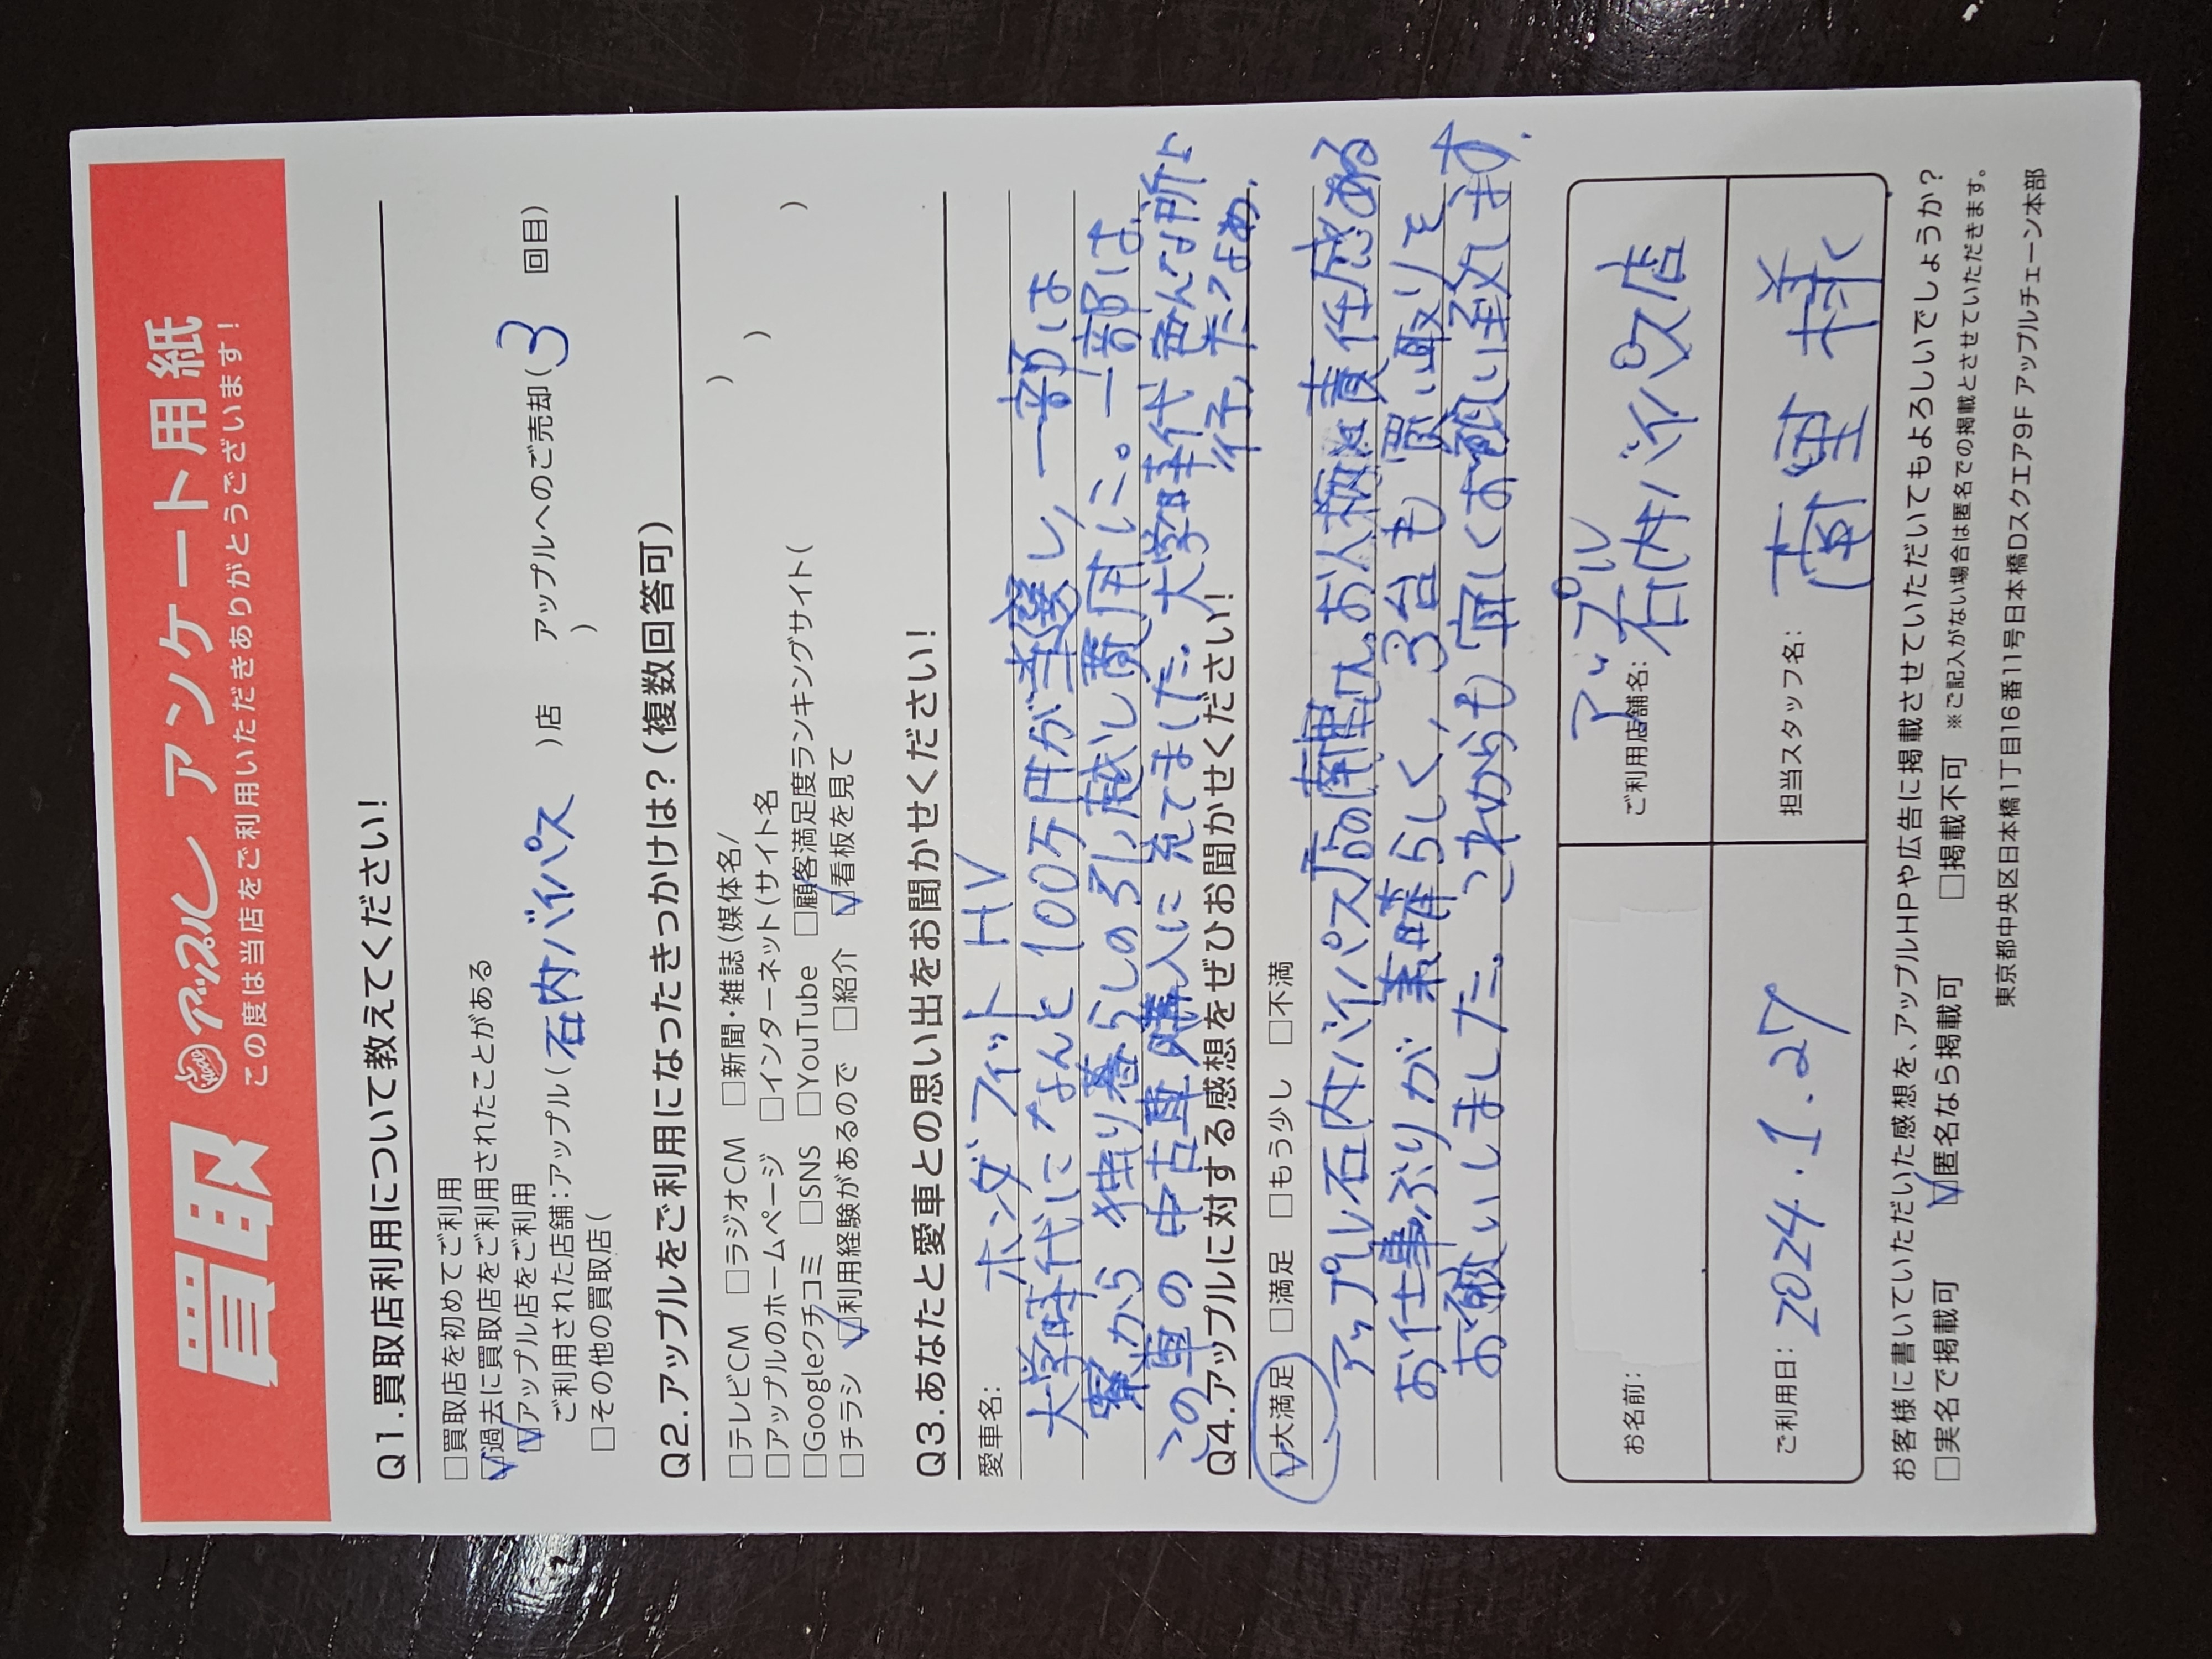 買取 アップル アンケート用紙
この度は当店をご利用いただきありがとうございます!
Q1.買取店利用について教えてください!
□買取店を初めてご利用
☑過去に買取店をご利用されたことがある
☑アップル店をご利用
ご利用された店舗:アップル(石内バイパス)店 アップルへのご売却(3 回目)
□その他の買取店( )
Q2.アップルをご利用になったきっかけは?(複数回答可)
□テレビCM □ラジオCM □新聞・雑誌(媒体名/ )
□アップルのホームページ □インターネット(サイト名 )
□Googleクチコミ □SNS □YouTube □顧客満足度ランキングサイト( )
□チラシ ☑利用経験があるので □紹介 ☑看板を見て
Q3.あなたと愛車との思い出をお聞かせください!
愛車名: ホンダ フィット HV
大学時代になんと100万円が当選し、一部は
寮から独り暮らしの引し越し費用に。一部は、
この車の中古車購入に充てました。大学時代色んな所に
行、たつため。
Q4.アップルに対する感想をぜひお聞かせください!
☑大満足 □満足 □もう少し □不満
アップル石内バイパス店の南里さん。お人柄や責任感ある
お仕事ぶりが素晴らしく、3台も買い取りを
お願いしました。これからも宜しくお願い致します。
お名前:
ご利用店舗名: アップル石内バイパス店
ご利用日: 2024.1.27
担当スタッフ名: 南里 様
お客様に書いていただいた感想を、アップルHPや広告に掲載させていただいてもよろしいでしょうか?
□実名で掲載可 ☑匿名なら掲載可 □掲載不可 ※ご記入がない場合は匿名での掲載とさせていただきます。
東京都中央区日本橋1丁目16番11号日本橋Dスクエア9F アップルチェーン本部